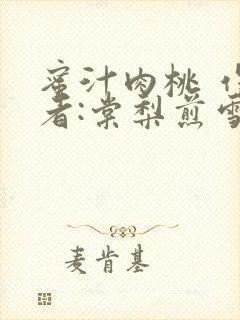 蜜汁肉桃
者:棠梨煎雪
麦肯基